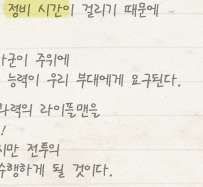 정비 시간이 걸리기 때문에
가군이 주위에
능력이 우리 부대에게 요구된다.
화력의 라이플맨을
!
시만 전투의
수행하게 될 것이다.